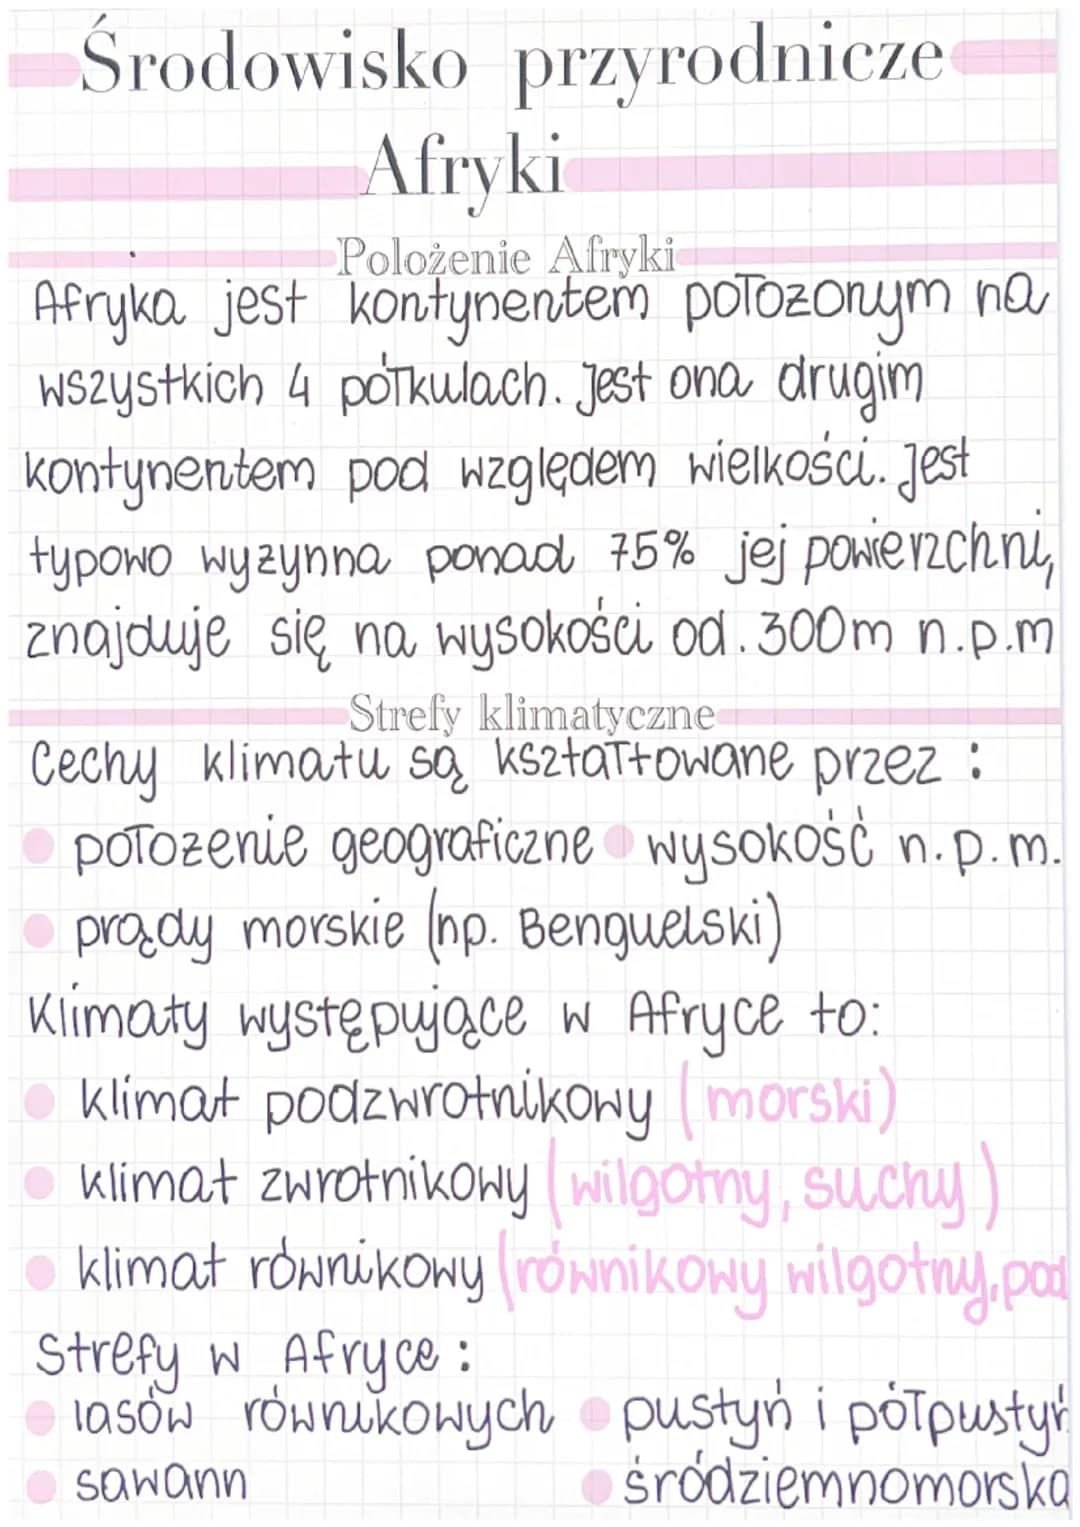 Środowisko przyrodnicze
Afryki
Położenie Afryki
Afryka jest kontynentem położonym na
wszystkich 4 półkulach. Jest ona drugim
kontynentem pod względem wielkości. Jest
typowo wyżynna ponad 75% jej powierzchni,
znajduje się na wysokości od. 300m n.p.m
Strefy klimatyczne
Cechy klimatu są kształtowane przez :
położenie geograficzne wysokość n.p.m.
prądy morskie (np. Benguelski)
Klimaty występujące w Afryce to:
klimat podzwrotnikowy (morski)
klimat zwrotnikowy (wilgotny, suchy)
klimat równikowy (równikowy wilgotny, pod
Strefy w Afryce :
lasów równikowych pustyń i półpustyń
sawann śródziemnomorska